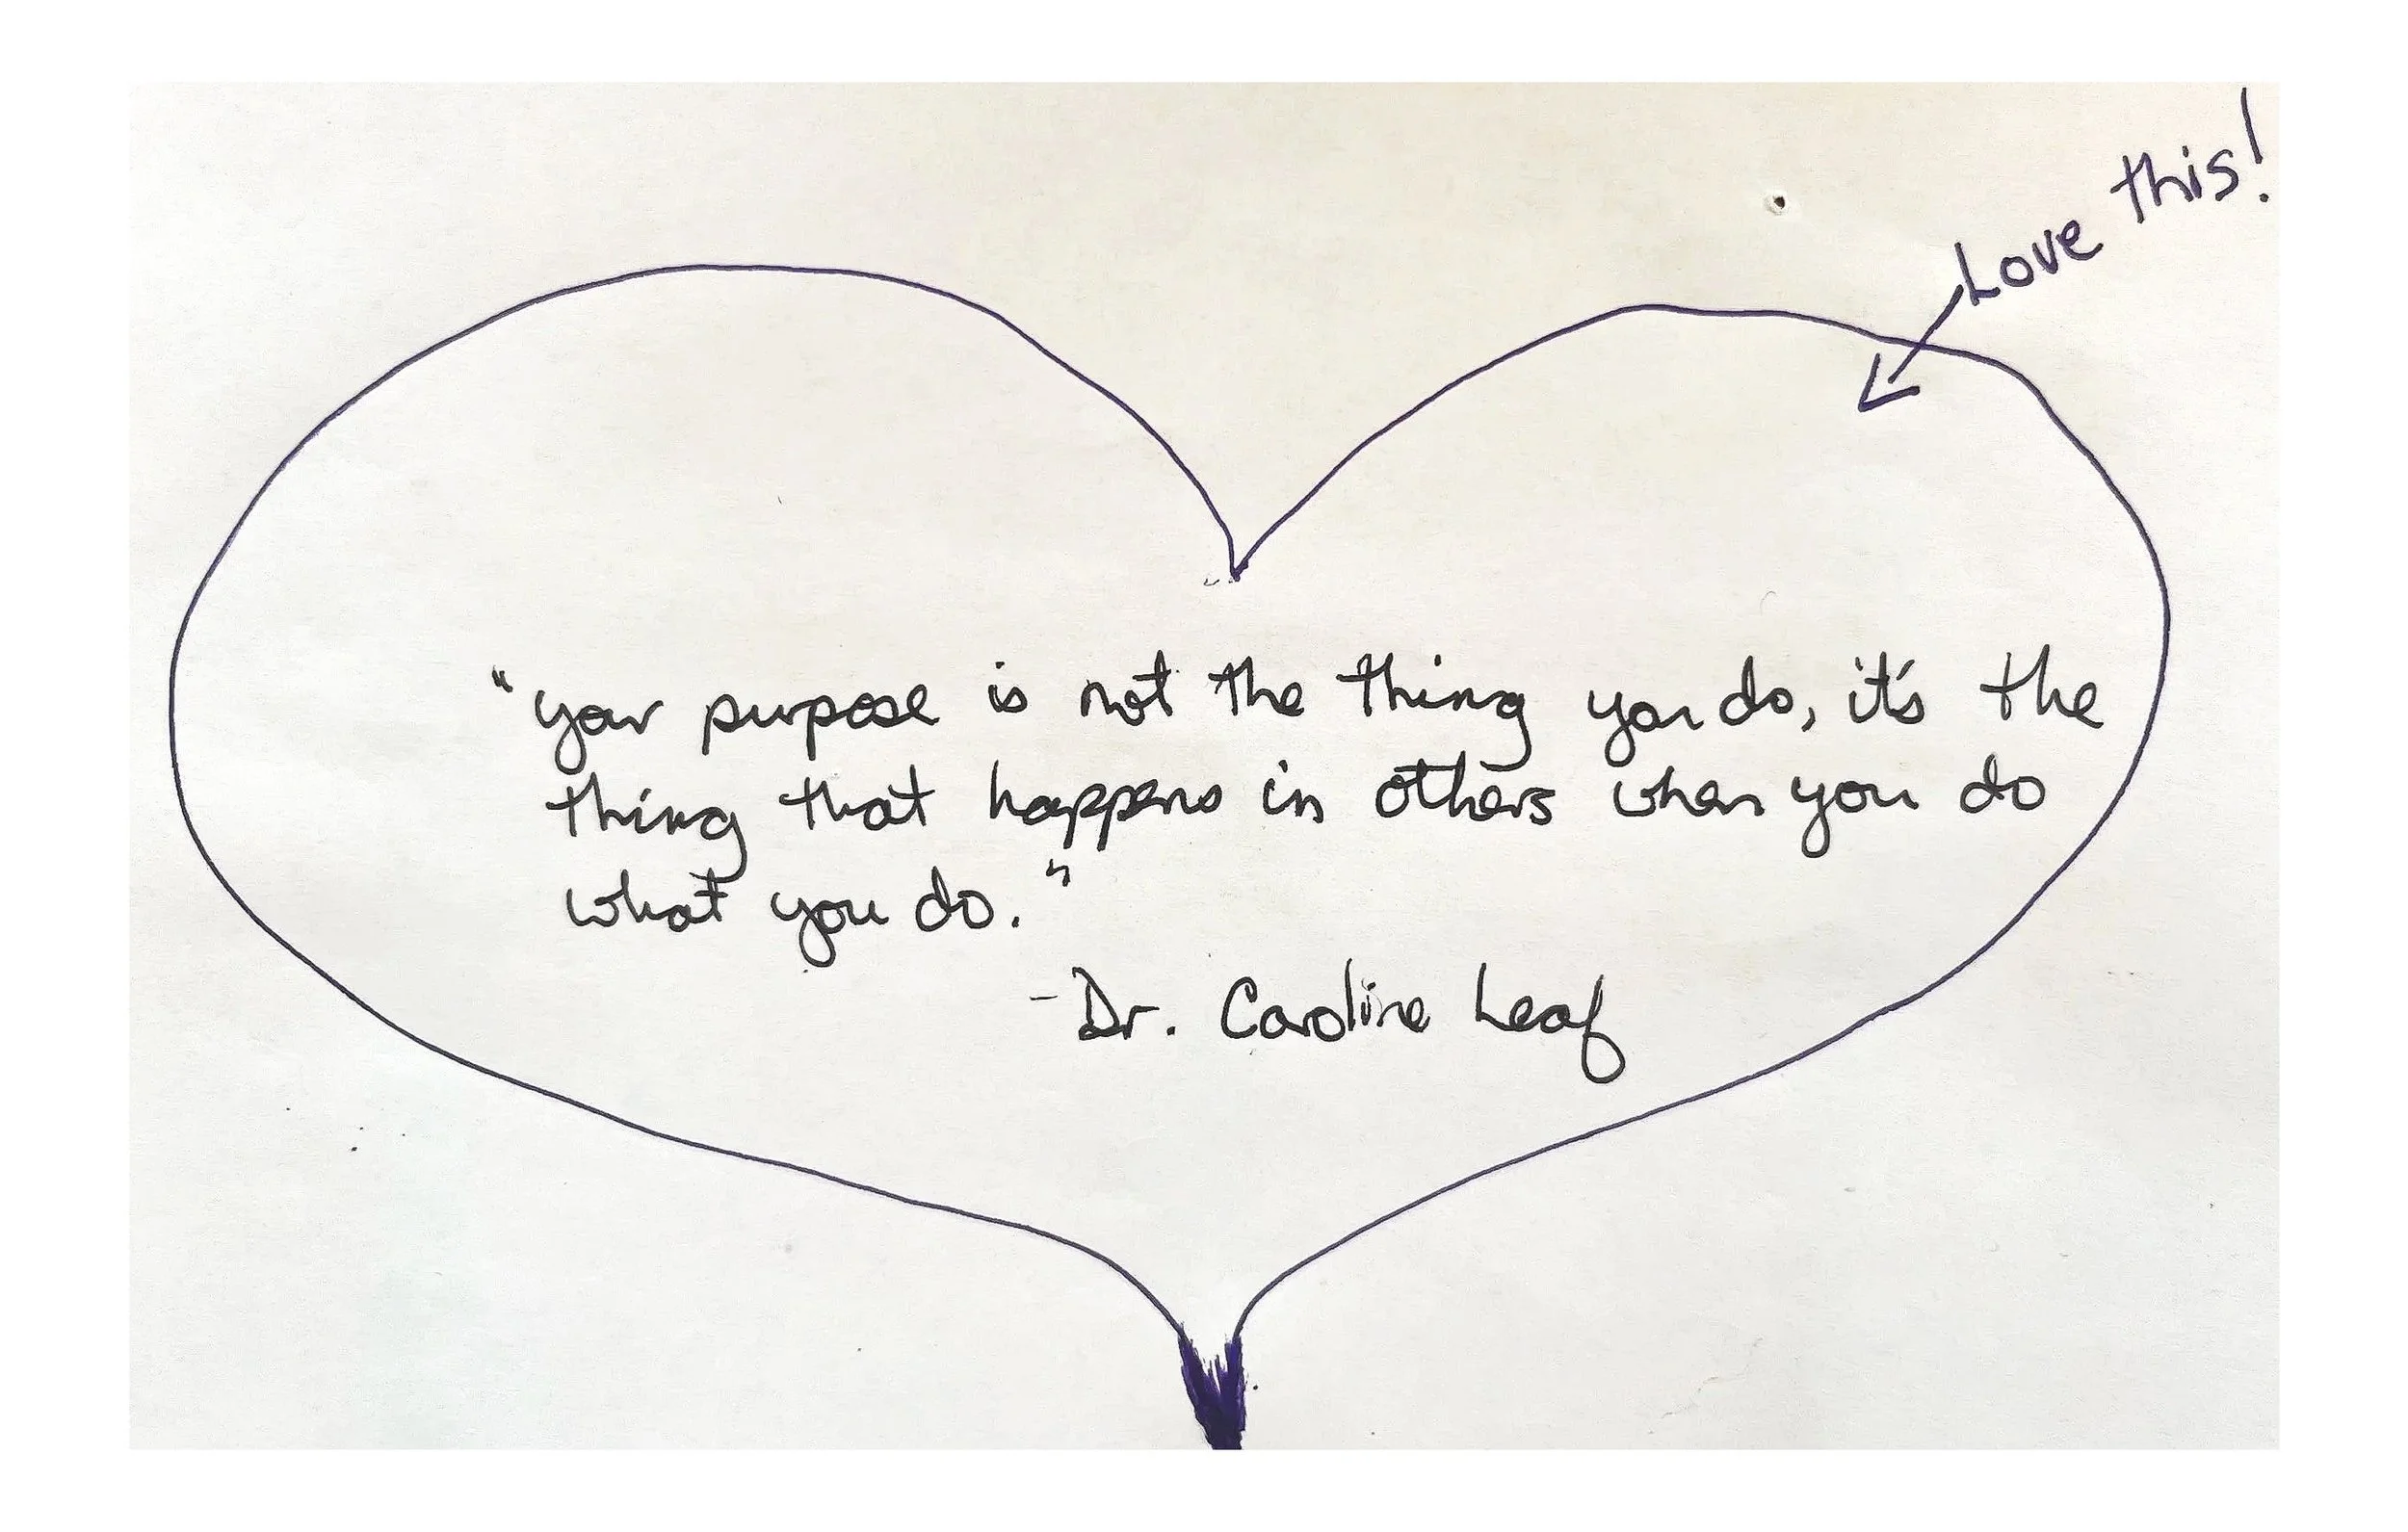 Love this!
"your purpose is not the thing you do, it's the
thing that happens in others when you do
what you do."
-Dr. Caroline Leaf